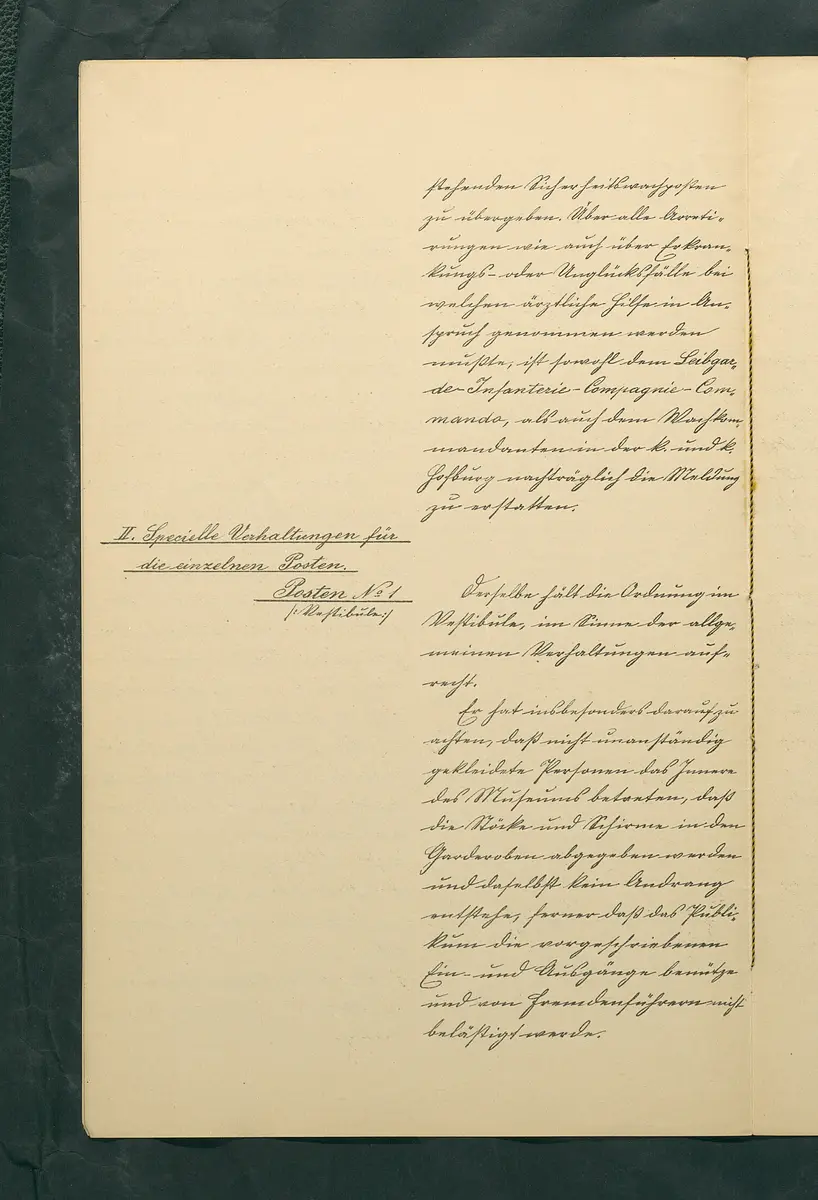 stehenden Sicherheitswachposten
zu übergeben. Über alle Arreti-
rungen wie auch über Erkran-
kungs- oder Unglücksfälle bei
welchen ärztliche Hilfe in An-
spruch genommen werden
mußte, ist sowohl dem Leibgar-
de-Infanterie-Compagnie-Com-
mando, als auch dem Wachkom-
mandanten in der k. und k.
Hofburg nachträglich die Meldung
zu erstatten.
II. Specielle Verhaltungen für
die einzelnen Posten.
Posten No 1
/: Vestibule :/
Derselbe hält die Ordnung im
Vestibule, im Sinne der allge-
meinen Verhaltungen auf-
recht.
Er hat insbesonders darauf zu
achten, daß nicht unanständig
gekleidete Personen das Innere
des Museums betreten, daß
die Stöcke und Schirme in den
Garderoben abgegeben werden
und daselbst kein Andrang
entstehe, ferner daß das Publi-
kum die vorgeschriebenen
Ein- und Ausgänge benütze
und von Fremdenführern nicht
belästigt werde.